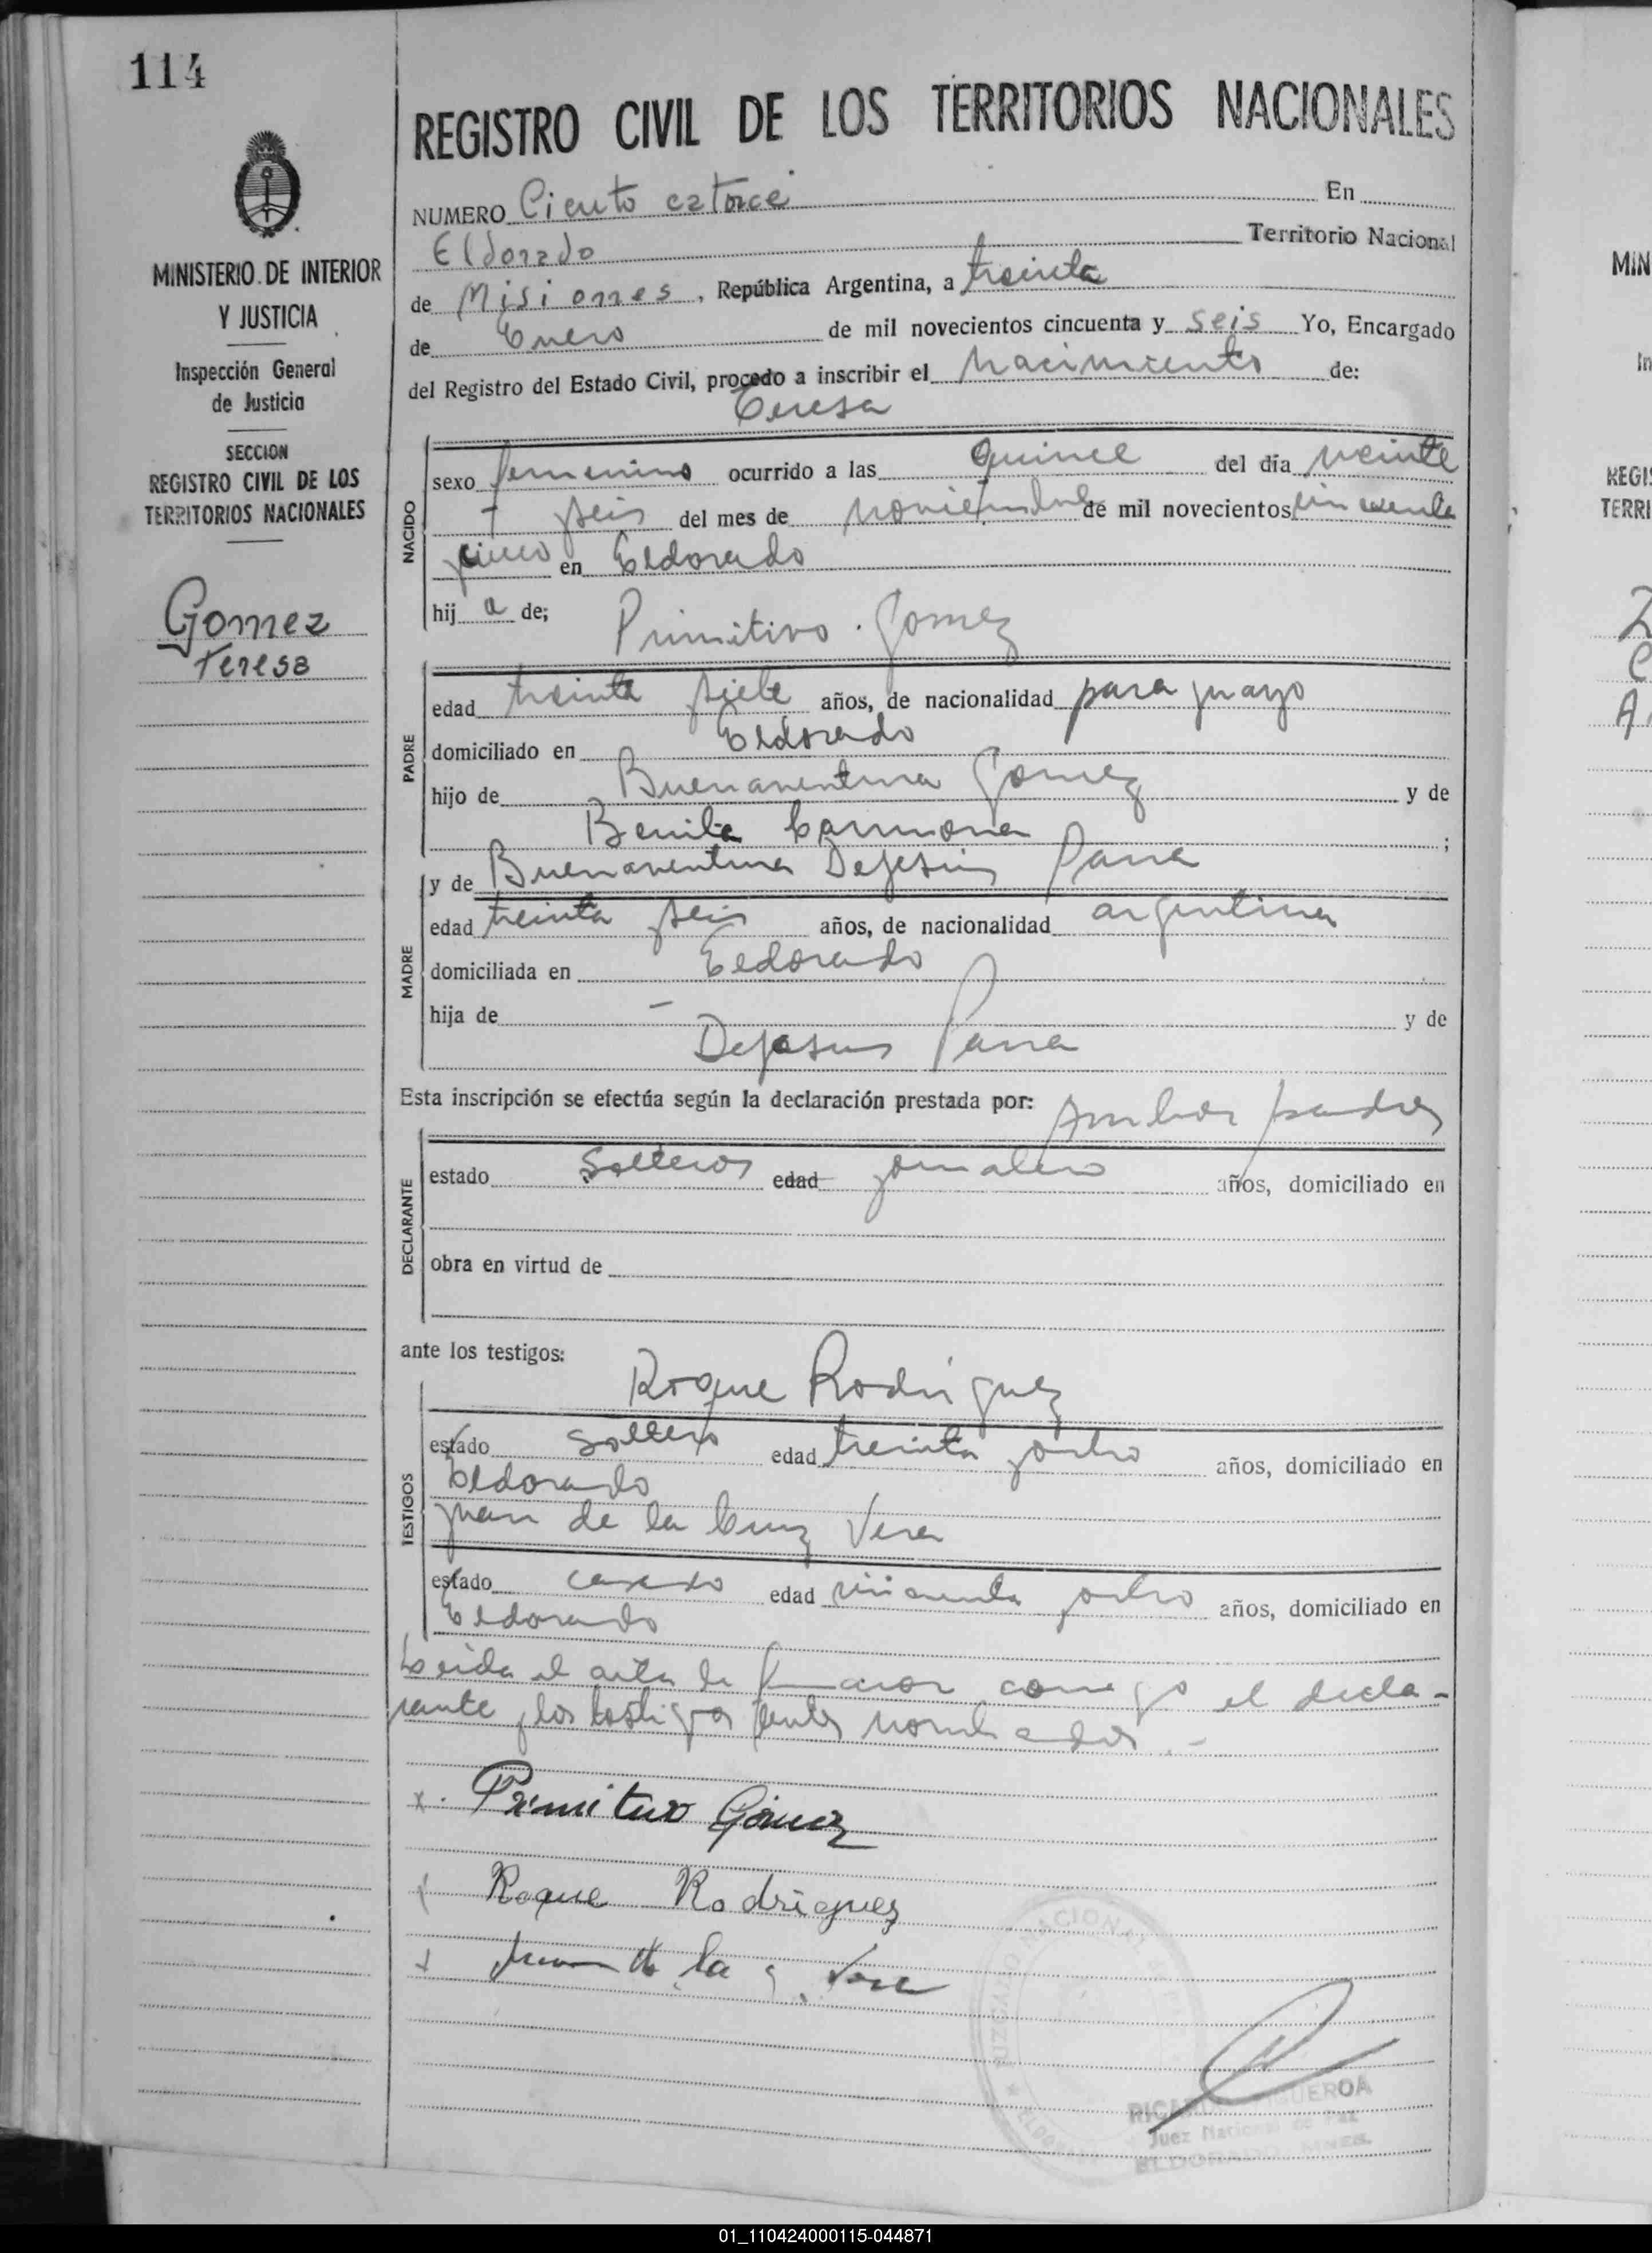 114
REGISTRO CIVIL DE LOS TERRITORIOS NACIONALES
MINISTERIO DE INTERIOR
Y JUSTICIA
Inspección General
de Justicia
SECCION
REGISTRO CIVIL DE LOS
TERRITORIOS NACIONALES
Gomez
Teresa
NUMERO Ciento catorce En
Eldorado Territorio Nacional
de Misiones, República Argentina, a treinta
de Enero de mil novecientos cincuenta y seis Yo, Encargado
del Registro del Estado Civil, procedo a inscribir el nacimiento de:
Teresa
NACIDO
sexo femenino ocurrido a las quince del día veinte
y seis del mes de noviembre de mil novecientos cincuenta
cinco en Eldorado
hij a de;
Primitivo Gomez
PADRE
edad treinta siete años, de nacionalidad paraguayo
domiciliado en Eldorado
hijo de Buenaventura Gomez y de
Benita Carmona ;
y de Buenaventura Dejesús Parra
MADRE
edad treinta seis años, de nacionalidad argentina
domiciliada en Eldorado
hija de — y de
Dejesus Parra
Esta inscripción se efectúa según la declaración prestada por: Ambos padres
DECLARANTE
estado solteros edad jornalero años, domiciliado en
obra en virtud de
ante los testigos:
Roque Rodriguez
TESTIGOS
estado soltero edad treinta ocho años, domiciliado en
Eldorado
Juan de la Cruz Vera
estado casado edad cincuenta ocho años, domiciliado en
Eldorado
Leida el acta la firman conmigo el decla-
rante y los testigos antes nombrados.-
x. Primitivo Gómez
Roque Rodriguez
x Juan de la C. Vera
JUZGADO NACIONAL
Juez Nacional de Paz
ELDORADO
MIN
REGIS
TERRI
01_110424000115-044871